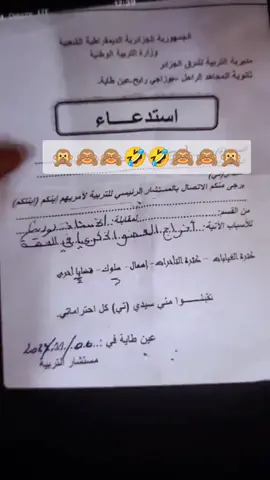 الجمهورية الجزائرية الديمقراطية الشعبية
وزارة التربية الوطنية
مديرية التربية لشرق الجزائر
ثانوية المجاهد الراحل بوزاجي رابح-عين طاية.
استدعاء
🙊🙈🙈🤣🤣🙈🙈🙊
يرجى منكم الاتصال بالمستشار الرئيسي للتربية لأمر يهم ابنكم (ابنتكم)
من القسم: لمقابلة
للأسباب الآتية: العضو الذكري في
كثرة الغيابات - كثرة التأخرات - إهمال - سلوك - قضايا أخرى
تقبلوا مني سيدي (تي) كل احتراماتي.
عين طاية في
مستشار التربية